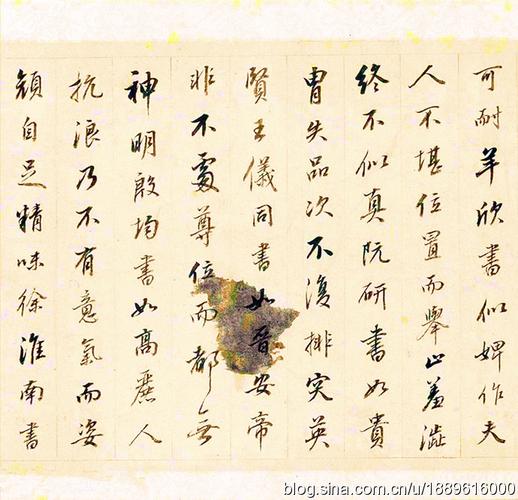 可耐羊欣書似婢作夫
人不堪位置而舉止羞澁
終不似真阮研書如貴
胄失品次不復排突英
賢王儀同書如晉安帝
非不處尊位而都無
神明殷均書如高麗人
抗浪乃不有意氣而姿
顔自足精味徐淮南書
blog.sina.com.cn/u/1889616000